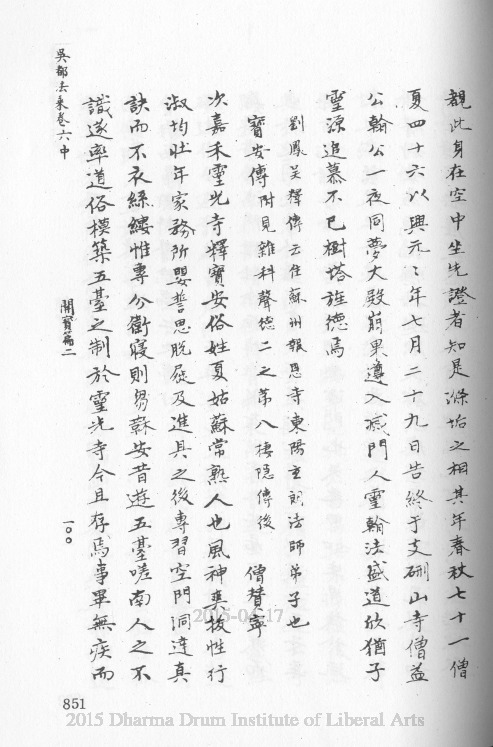 覩此身在空中坐先證者知是滌垢之相其年春秋七十一僧
夏四十六以興元二年七月二十九日告終于支硎山寺僧益
公翰公一夜同夢大殿崩果遵入滅門人靈翰法盛道欣猶子
靈源追慕不已樹塔旌德焉
劉鳳吳釋傳云住蘇州報恩寺東陽玄朗法師弟子也
寶安傳附見雜科聲德二之第八棲隱傳後 僧贊寧
次嘉禾靈光寺釋寶安俗姓夏姑蘇常熟人也風神爽拔性行
淑均壯年家務所嬰誓思脫屣及進具之後專習空門洞達真
訣而不衣絲縷惟專分衛寢則芻蘇安昔遊五臺嗟南人之不
識遂率道俗模築五臺之制於靈光寺今且存焉事畢無疾而
吳都法乘卷六中 開寶篇二 一〇〇
851
2015-04-17
2015 Dharma Drum Institute of Liberal Arts